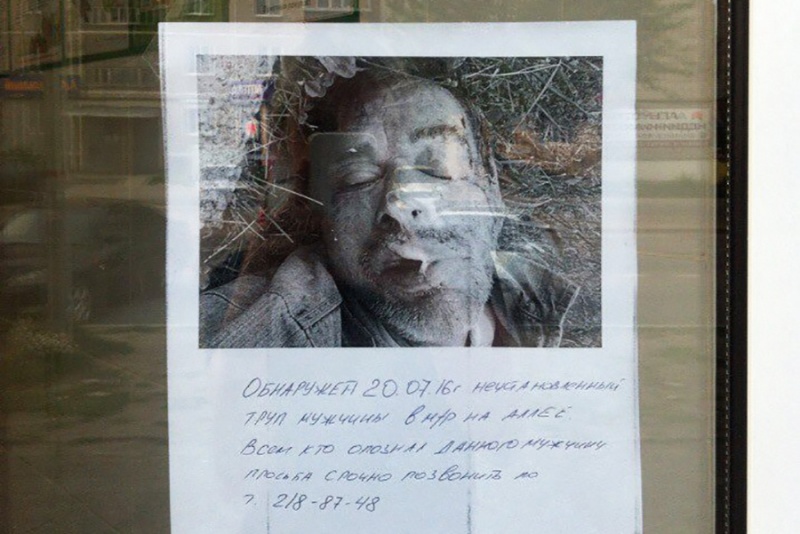 ОБНАРУЖЕН 20.07.16г НЕУСТАНОВЛЕННЫЙ
ТРУП МУЖЧИНЫ В М/Р НА АЛЛЕЕ.
ВСЕМ КТО ОПОЗНАЛ ДАННОГО МУЖЧИНУ
ПРОСЬБА СРОЧНО ПОЗВОНИТЬ ПО
Т. 218-87-48